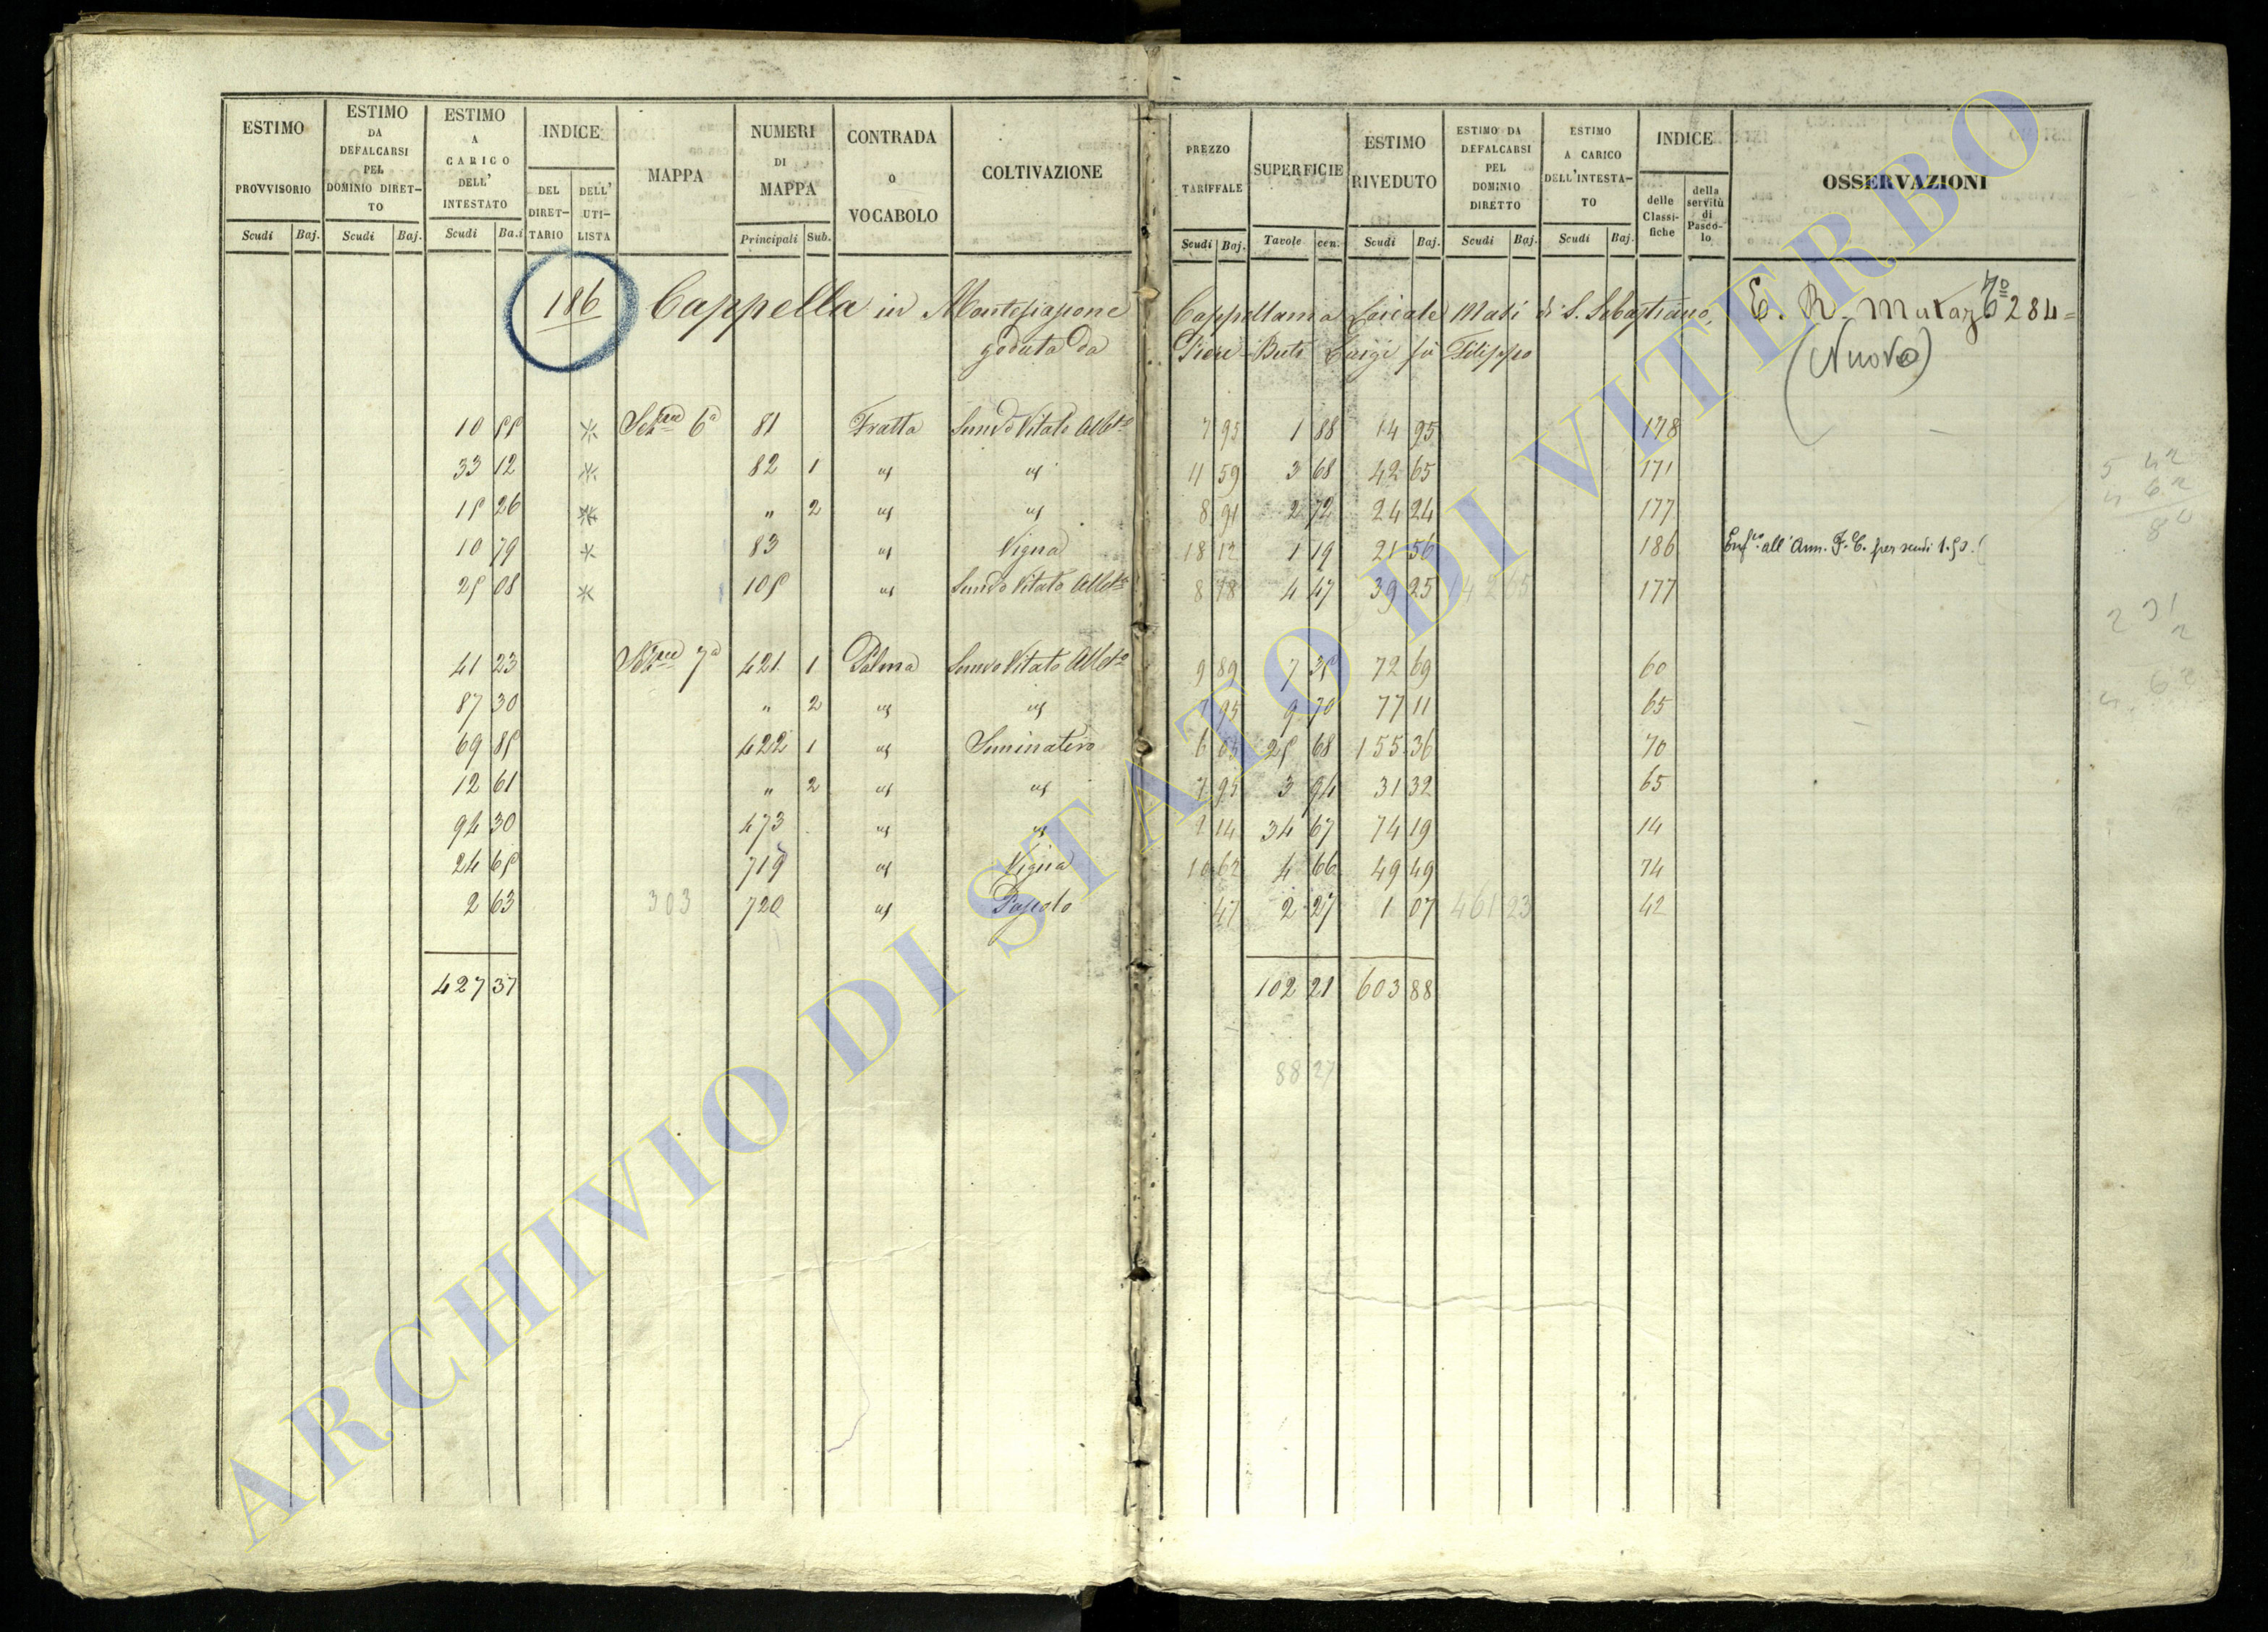 ESTIMO PROVVISORIO Scudi Baj.
ESTIMO DA DEFALCARSI PEL DOMINIO DIRETTO Scudi Baj.
ESTIMO A CARICO DELL' INTESTATO Scudi Ba.i
INDICE DEL DIRETTARIO DELL' UTILISTA
MAPPA
NUMERI DI MAPPA Principali Sub.
CONTRADA o VOCABOLO
COLTIVAZIONE
PREZZO TARIFFALE Scudi Baj.
SUPERFICIE Tavole cen.
ESTIMO RIVEDUTO Scudi Baj.
ESTIMO DA DEFALCARSI PEL DOMINIO DIRETTO Scudi Baj.
ESTIMO A CARICO DELL'INTESTATO Scudi Baj.
INDICE delle Classifiche della servitù di Pascolo
OSSERVAZIONI
186 Cappella in Montefiascone Cappellania Laicale Masi di S. Sebastiano, E. R. 284
goduta da Pieri Buti Luigi fù Filippo (Nuova)
10 55 * Sez.ne 6a 81 Fratta Semvo Vitato Albto 7 95 1 88 14 95 178
33 12 * 82 1 us us 11 59 3 68 42 65 171
15 26 * " 2 us us 8 91 2 72 24 24 177
10 79 * 83 us Vigna 18 12 1 19 21 56 186 all' Ann. F. C. per scudi 1.50.
25 08 * 105 us Semvo Vitato Albto 8 78 4 47 39 25 42 65 177
41 23 Sez.ne 7a 421 1 Palma Semvo Vitato Albto 9 89 7 35 72 69 60
87 30 " 2 us us 7 95 9 70 77 11 65
69 85 422 1 us Seminativo 6 05 25 68 155 36 70
12 61 " 2 us us 7 95 3 94 31 32 65
94 30 473 us us 2 14 34 67 74 19 14
24 65 719 us Vigna 10 62 4 66 49 49 74
2 63 303 720 us Pascolo 47 2 27 1 07 461 23 42
427 37 102 21 603 88
88 27
ARCHIVIO DI STATO DI VITERBO